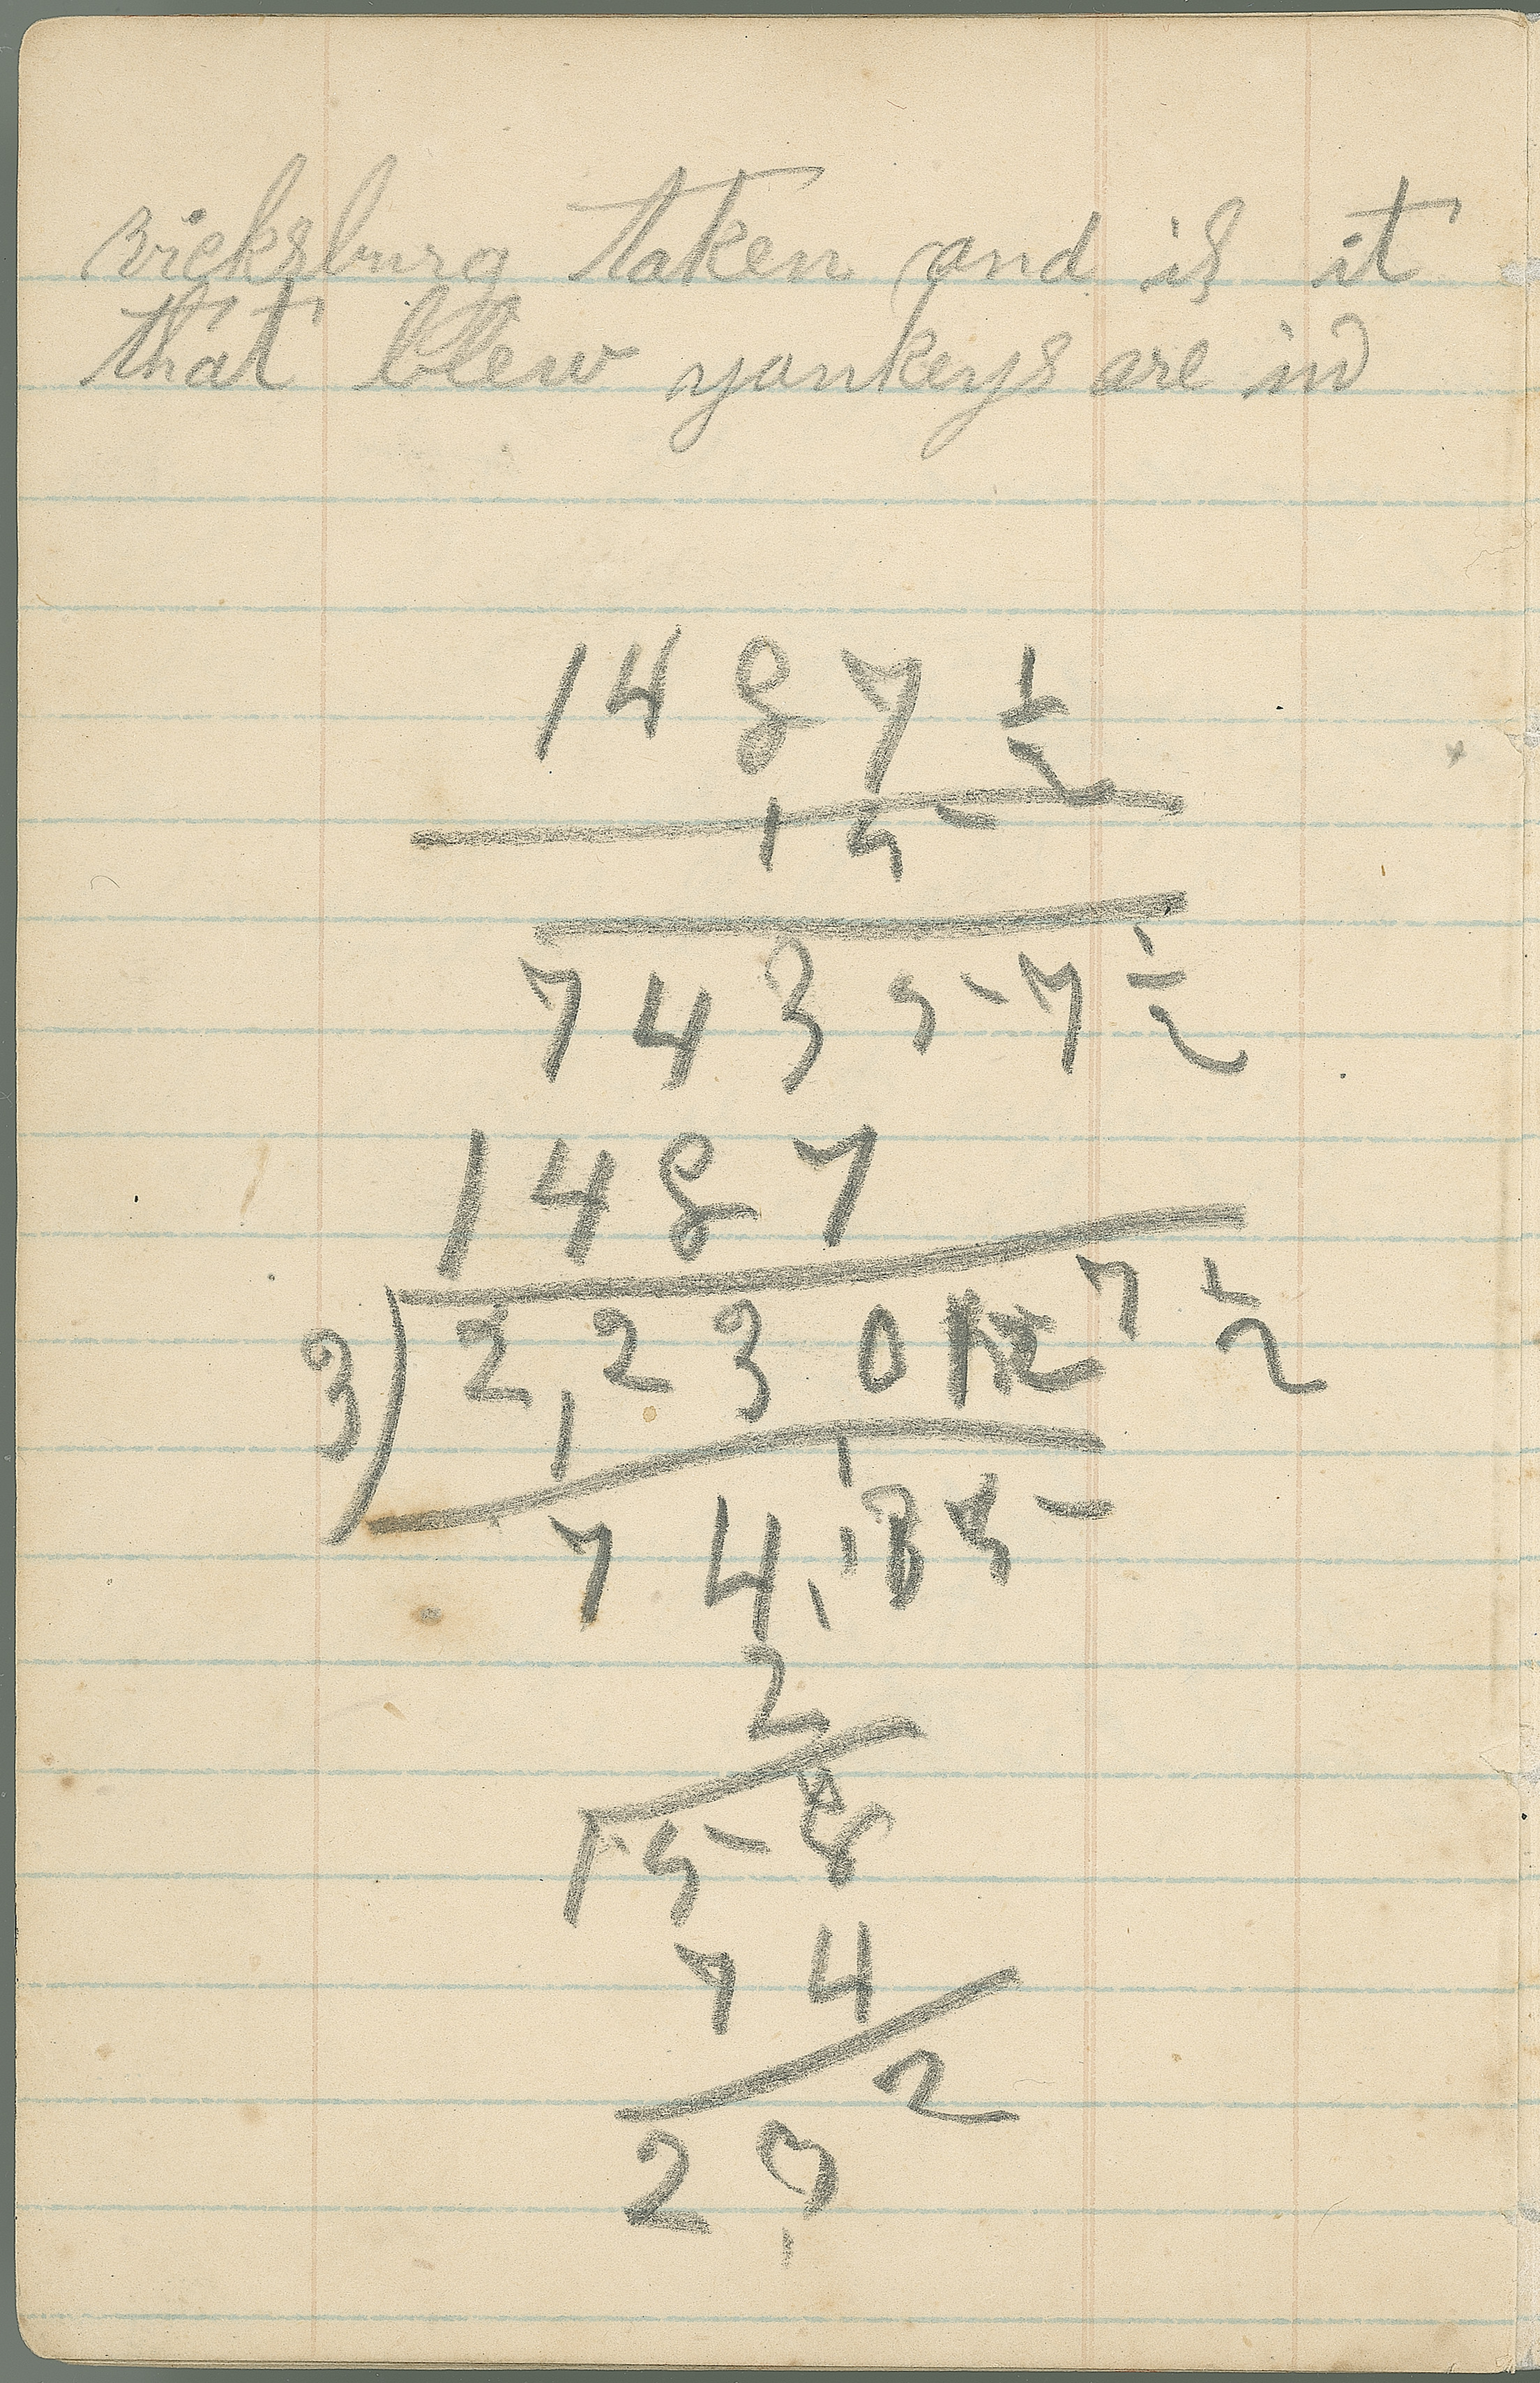 vicksburg taken and is it
that blew yankeys are in
1487 1/2
15
74357 1/2
1487
3) 2,230 7 1/2
74,85
2
158
74
2
29